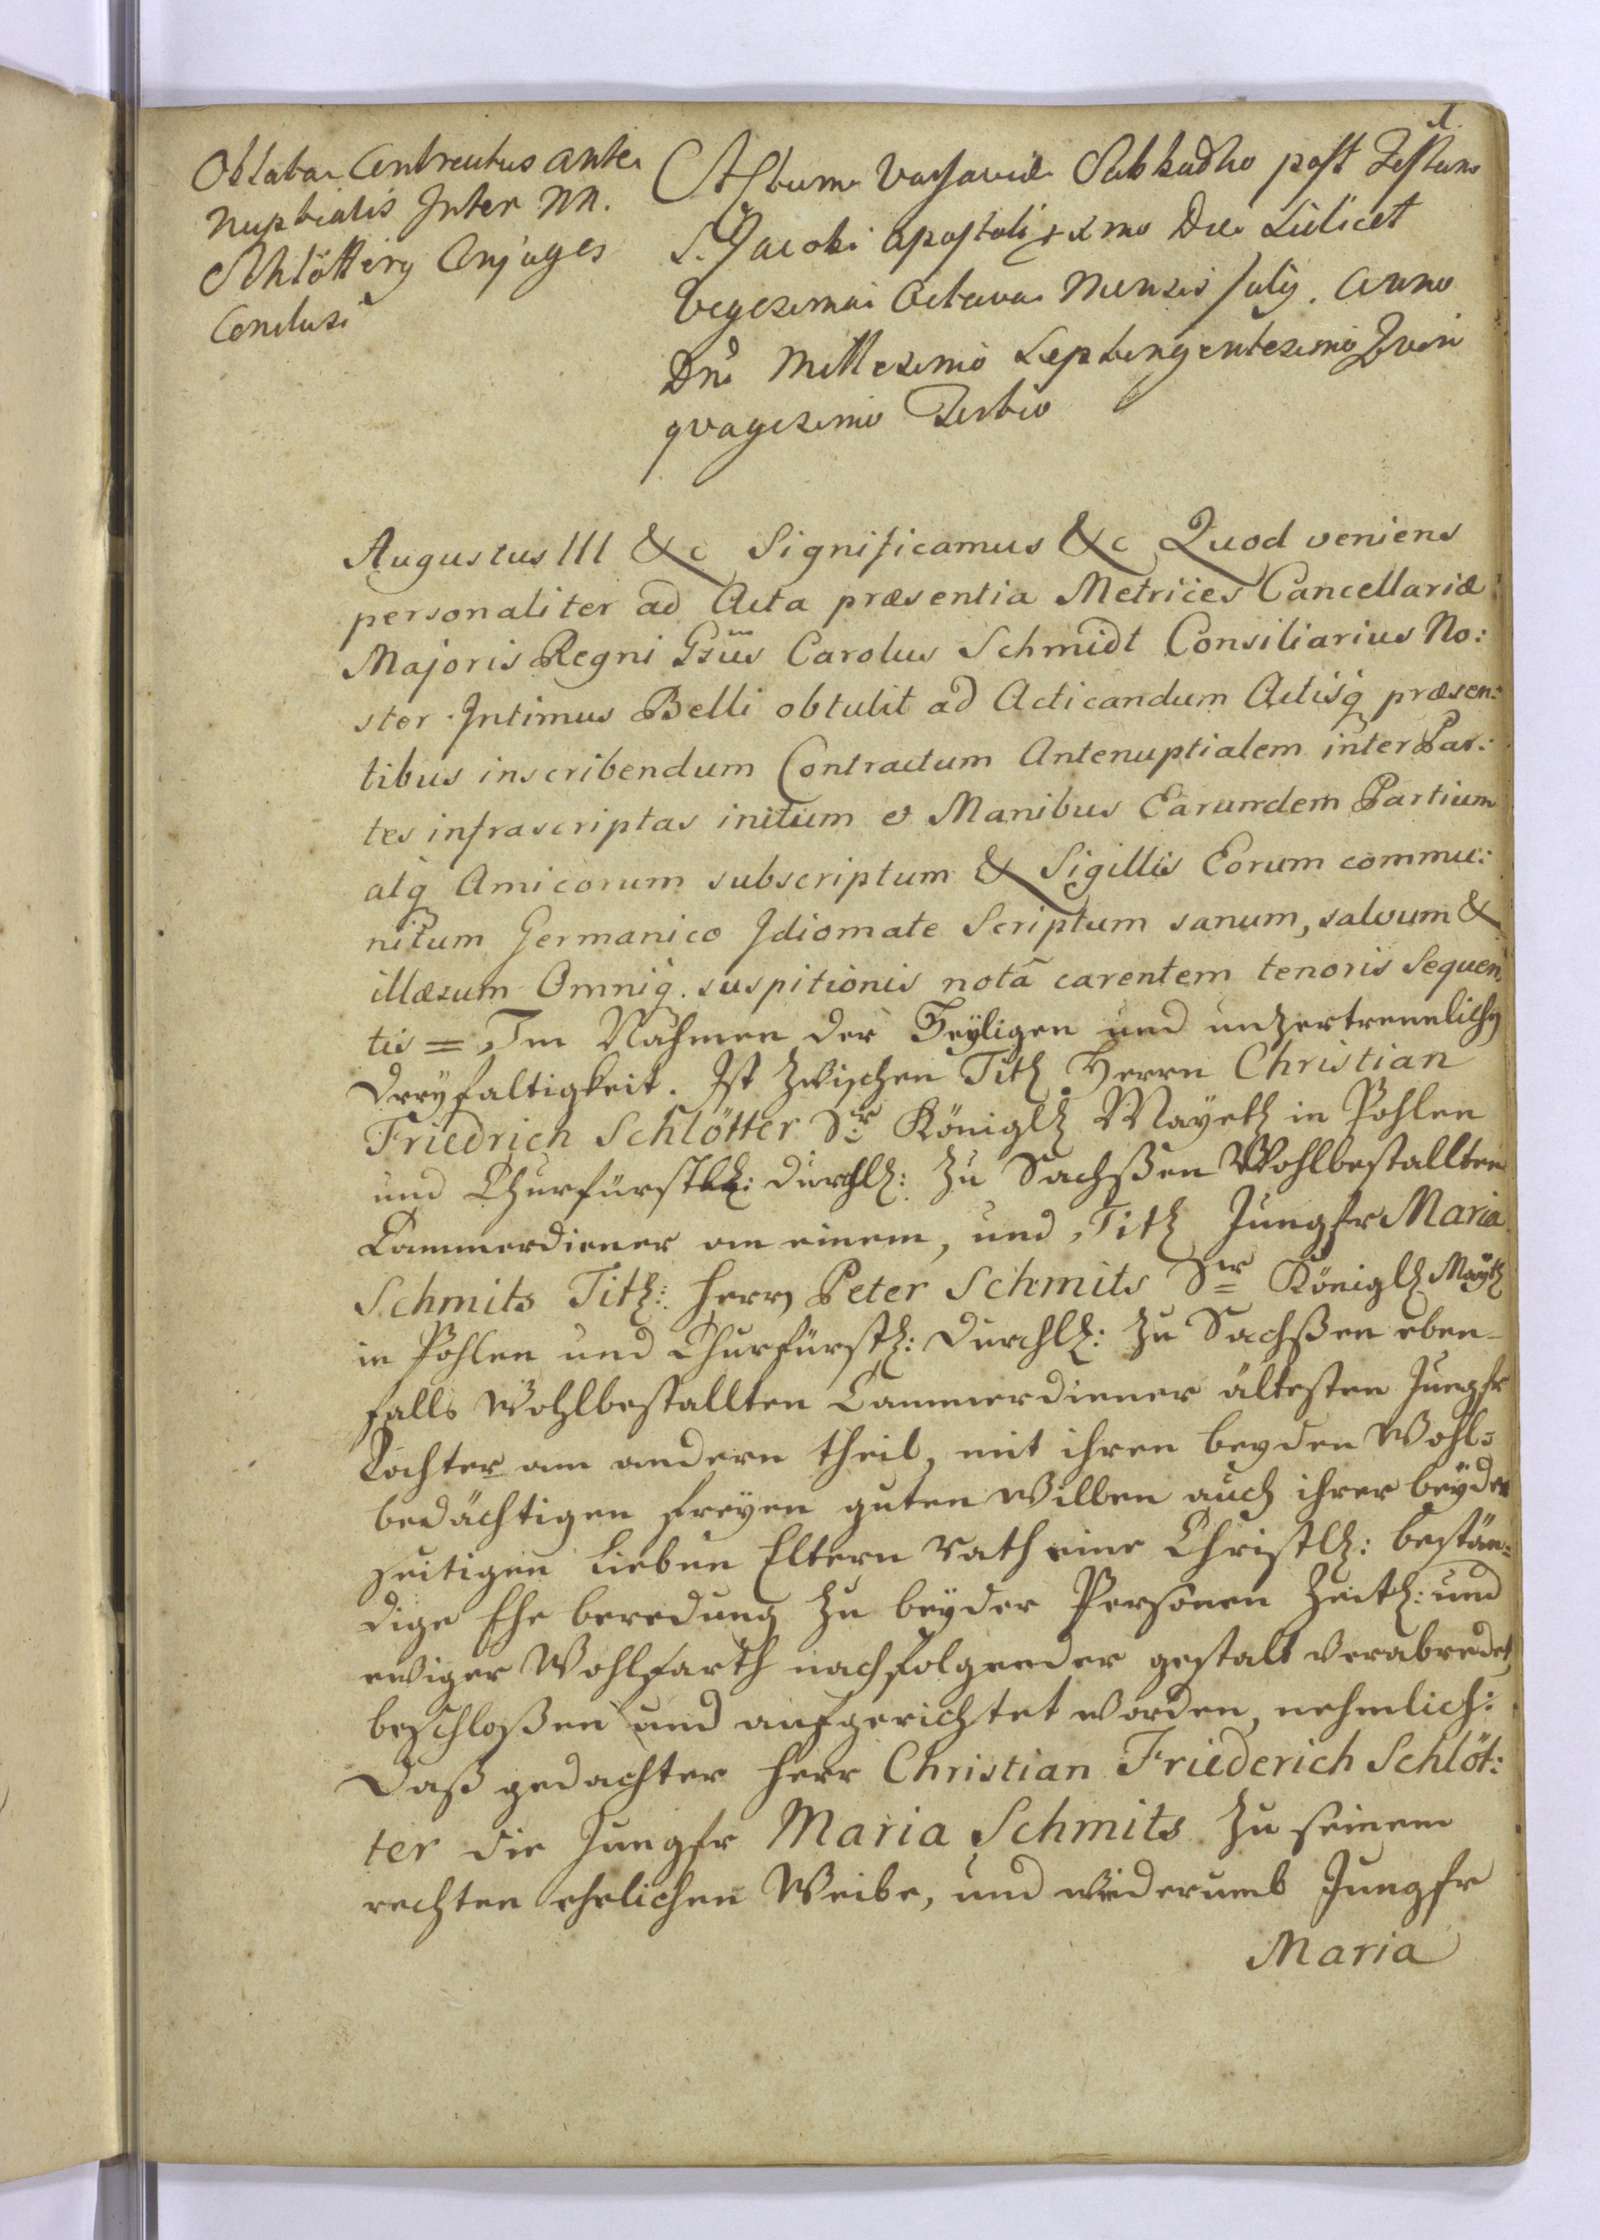 1.
Oblata Contractus ante
nuptialis Inter NN.
Schlötterỹ Conjuges
Conclusi
Actum Varsaviæ Sabbatho post Festum
S. Jacobi Apostoli pxmo Die Scilicet
Vigesima Octava Mensis Julij. Anno
Dni Millesimo Septingentesimo Qvin
qvagesimo Tertio
Augustus III &c Significamus &c Quod veniens
personaliter ad Acta præsentia Metrices Cancellariæ
Majoris Regni Gsus Carolus Schmidt Consiliarius No:
ster Intimus Belli obtulit ad Acticandum Actisq præsen:
tibus inscribendum Contractum Antenuptialem inter Par:
tes infrascriptas initum et Manibus Earumdem Partium
atq Amicorum subscriptum & Sigillis Eorum commu:
nitum Germanico Idiomate Scriptum sanum, salvum &
illæsum Omniq. suspitionis notâ carentem tenoris Sequen
tis = Im Nahmen der Heyligen und unzertrennlichen
Dreyfaltigkeit. Ist zwischen Titl Herrn Christian
Friedrich Schlötter Sr Königll Mayett in Pohlen
und Churfürstll: Durchll: zu Sachßen Wohlbestallten
Cammerdiener an einem, und Titl Jungfr Maria
Schmits Titl: Herrn Peter Schmits Sr Königll Maytt
in Pohlen und Churfürstl: Durchll: zu Sachßen eben-
falls Wohlbestallten Cammerdiener ältesten Jungfr
Tochter am andern theil, mit ihren beyden Wohl=
bedächtigen freyen guten Willen auch ihrer beyder
seitigen Lieben Eltern Rath eine Christll: bestän=
dige Ehe beredung zu beyder Persohnen Zeitl: und
ewiger Wohlfarth nachfolgender gestalt verabredet,
beschloßen und aufgerichtet worden, nehmlich:
Daß gedachter Herr Christian Friederich Schlöt:
ter die Jungfr Maria Schmits zu seinem
rechten ehelichen Weibe, und wiederumb Jungfr
Maria